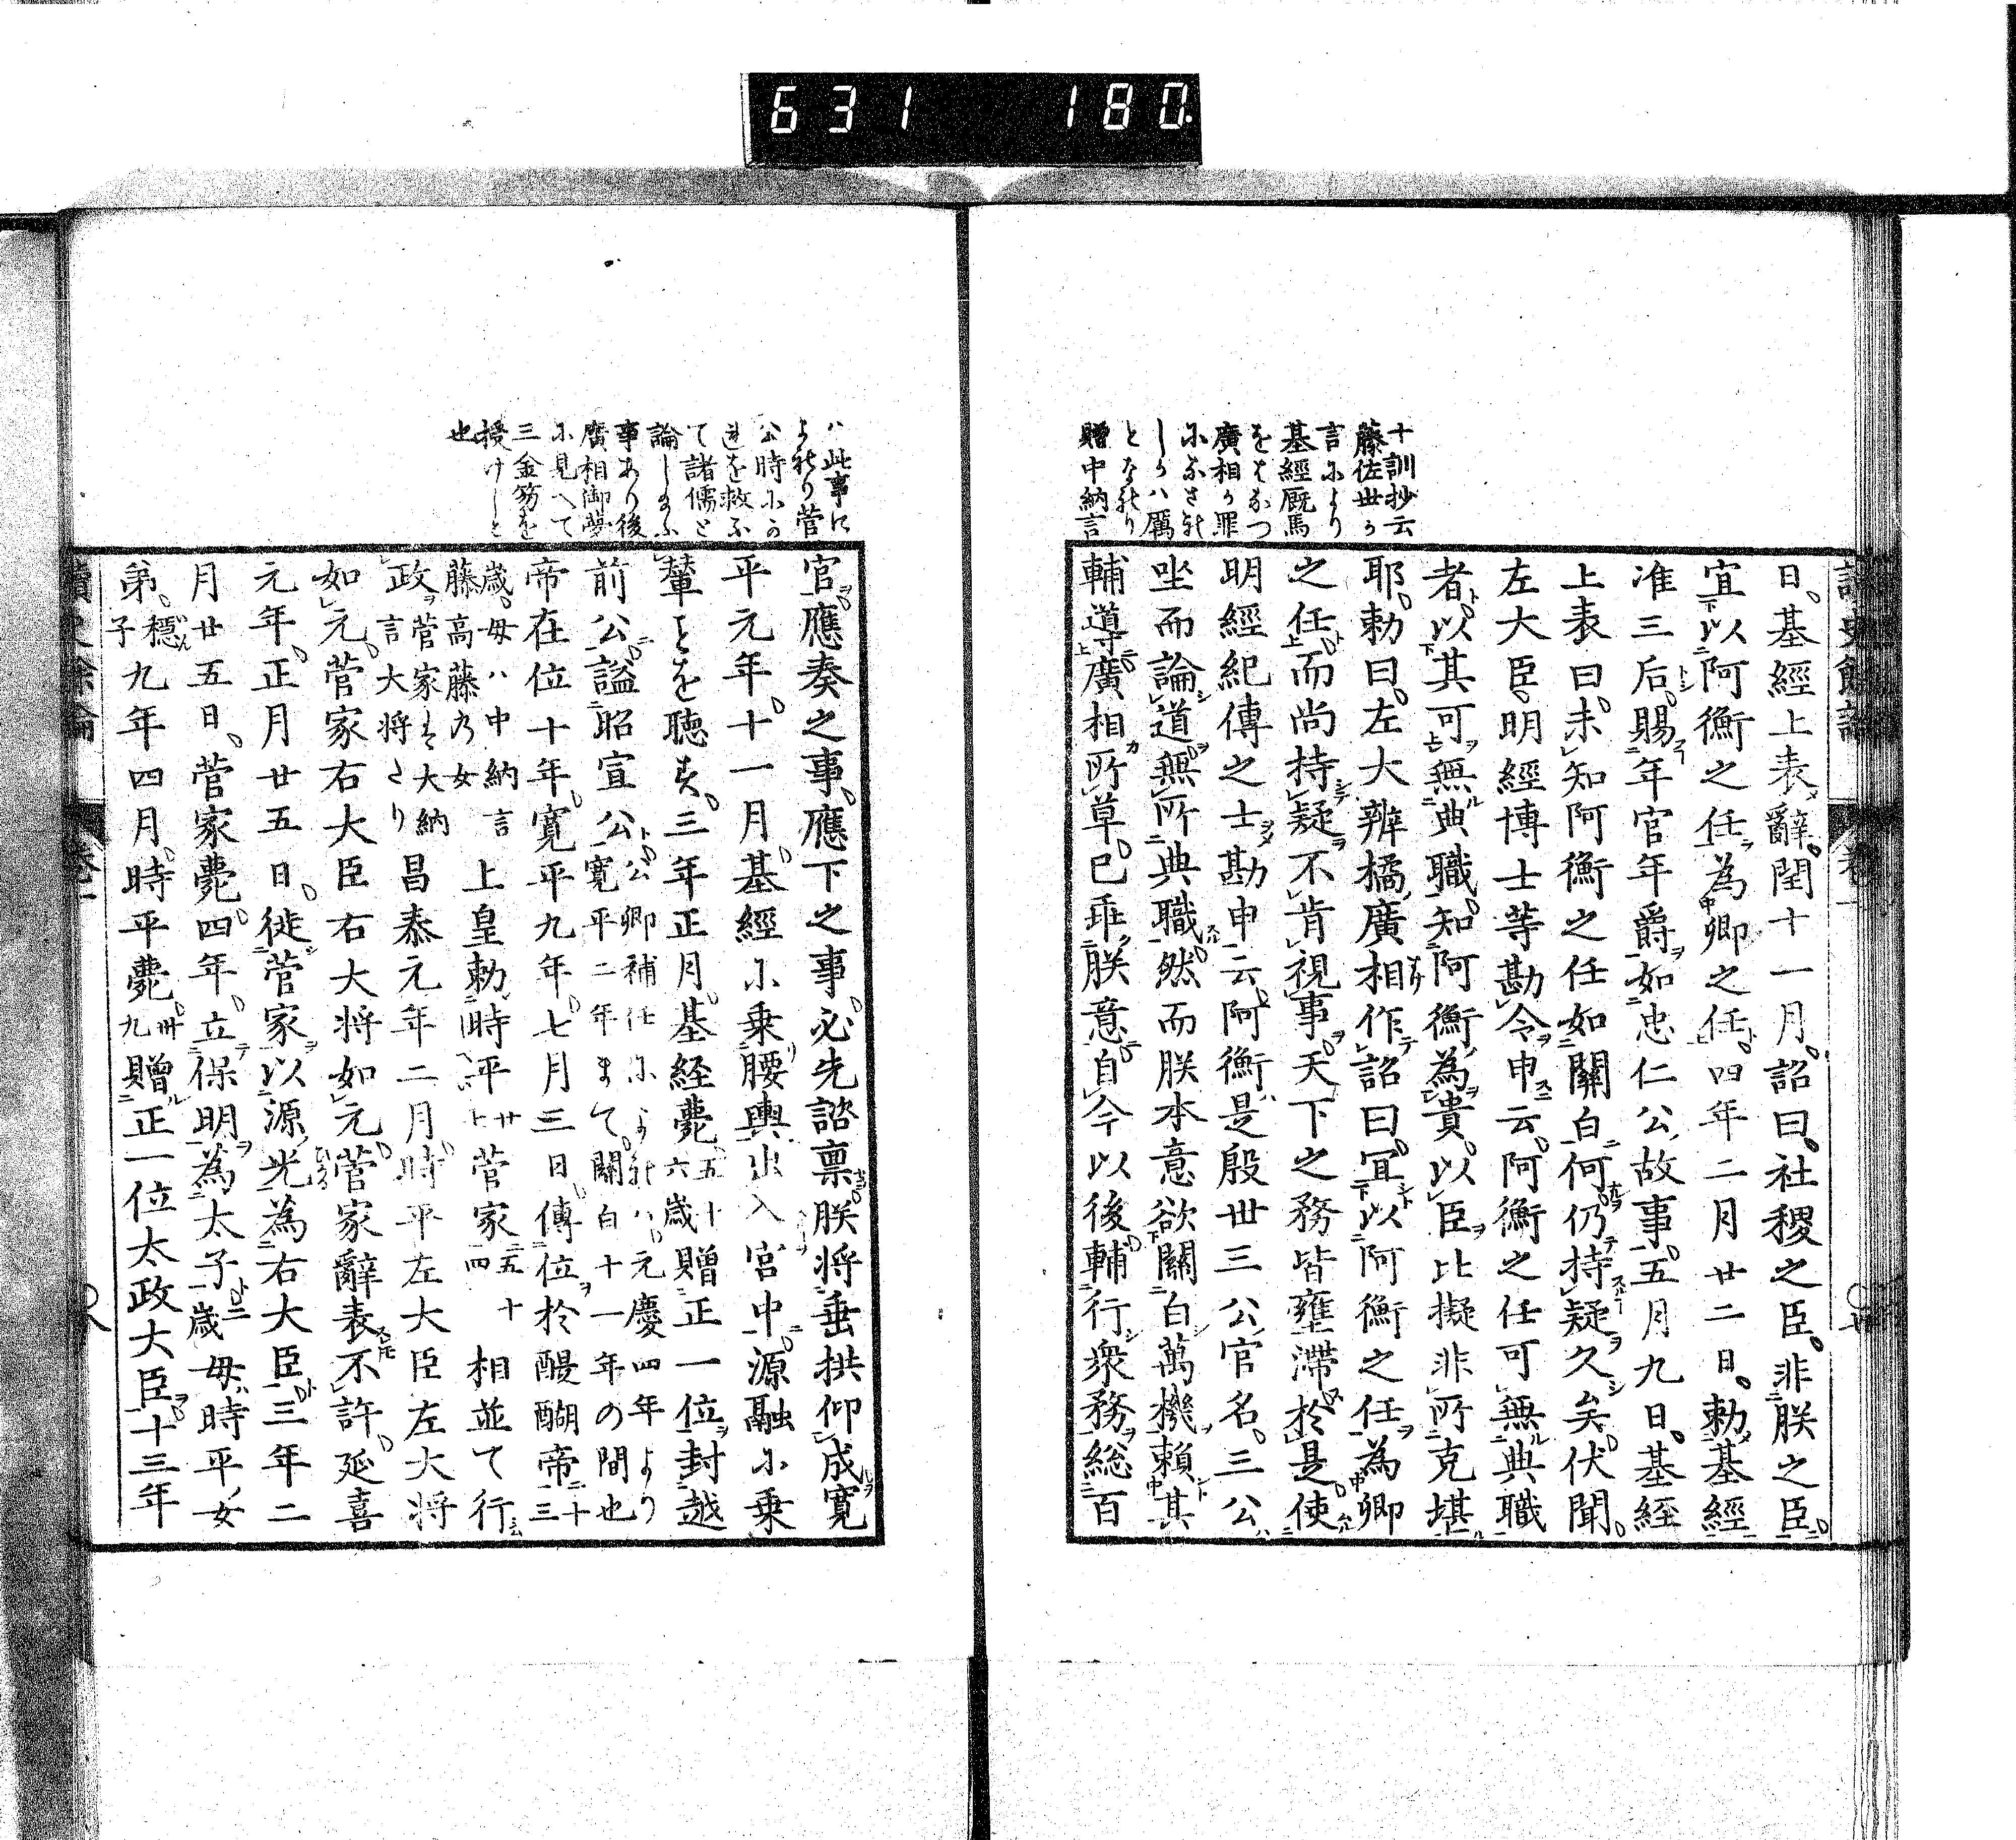 631 180
十訓抄云
藤佐世ゟ
言により
基經厩馬
をはなつ
廣相ゟ罪
になされ
しゟハ厲
となれり
贈中納言
日。基經上表辭。閏十一月。詔曰。社稷之臣。非朕之臣。
宜以阿衡之任為卿之任。四年二月廿二日。勅基經
准三后。賜年官年爵如忠仁公故事。五月九日。基経
上表曰。未知阿衡之任如關白。何仍持疑久矣。伏聞。
左大臣。明經博士等勘令申云。阿衡之任可無典職
者。以其可無典職。知阿衡為貴。以臣比擬非所克堪
耶。勅曰。左大辨橘廣相作詔曰。宜以阿衡之任為卿
之任。而尚持疑不肯視事。天下之務皆壅滞於是。使
明經紀傳之士勘申云。阿衡是殷世三公官名。三公
坐而論道無所典職。然而朕本意欲關白萬機頼其
輔導。廣相所草。已乖朕意。自今以後。輔行衆務。総百
ハ此事に
よれり菅
公時にか
れを救ふ
て諸儒と
論し給ふ
事あり後
廣相御夢
に見へて
三金笏を
授けしと
也
官。應奏之事。應下之事。必先諮禀。朕将垂拱仰成。寛
平元年。十一月。基經に乗腰輿出入宮中。源融に乗
輦ことを聴す。三年正月。基経薨。五十六歳贈正一位封越
前公謚昭宣公。公卿補任によれハ元慶四年より寛平二年まて。關白十一年の間也
帝在位十年。寛平九年七月三日。傳位於醍醐帝。十三
歳。母ハ中納言藤高藤乃女上皇勅時平廿七菅家五十四相並て行
政。菅家は大納言大将たり昌泰元年二月。時平左大臣左大将
如元。菅家右大臣右大将如元。菅家辭表不許。延喜
元年。正月廿五日。徙菅家。以源光為右大臣。三年二
月廿五日。菅家薨。四年。立保明為太子。二歳母時平女
弟。穏子九年四月。時平薨。卅九贈正一位太政大臣。十三年